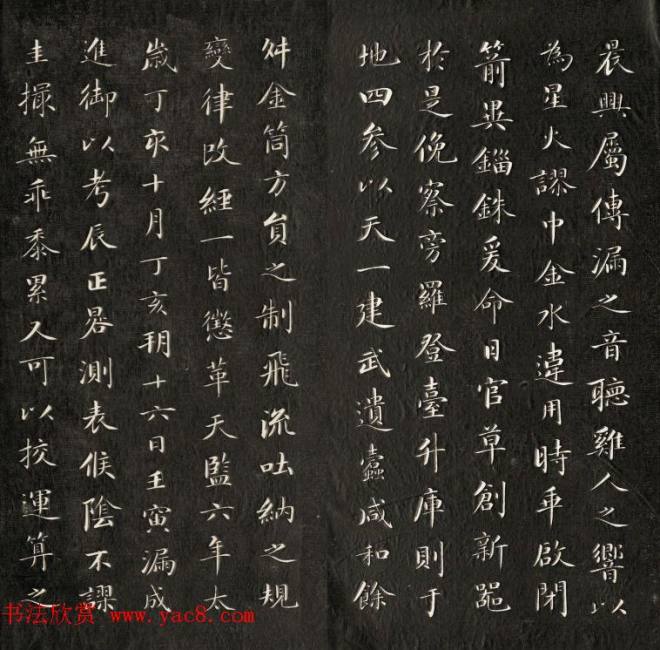 晨興屬傳漏之音聽雞人之響以
為星火謬中金水違用時乖啟閉
箭異錙銖爰命日官草創新器
於是俛察旁羅登臺升庫則于
地四参以天一建武遺蠹咸和餘
舛金筒方員之制飛流吐納之規
變律改經一皆懲革天監六年太
歲丁亥十月丁亥玥十六日壬寅漏成
進御以考辰正晷測表候陰不謬
圭撮無乖黍累又可以挍運算之
书法欣赏 www.yac8.com